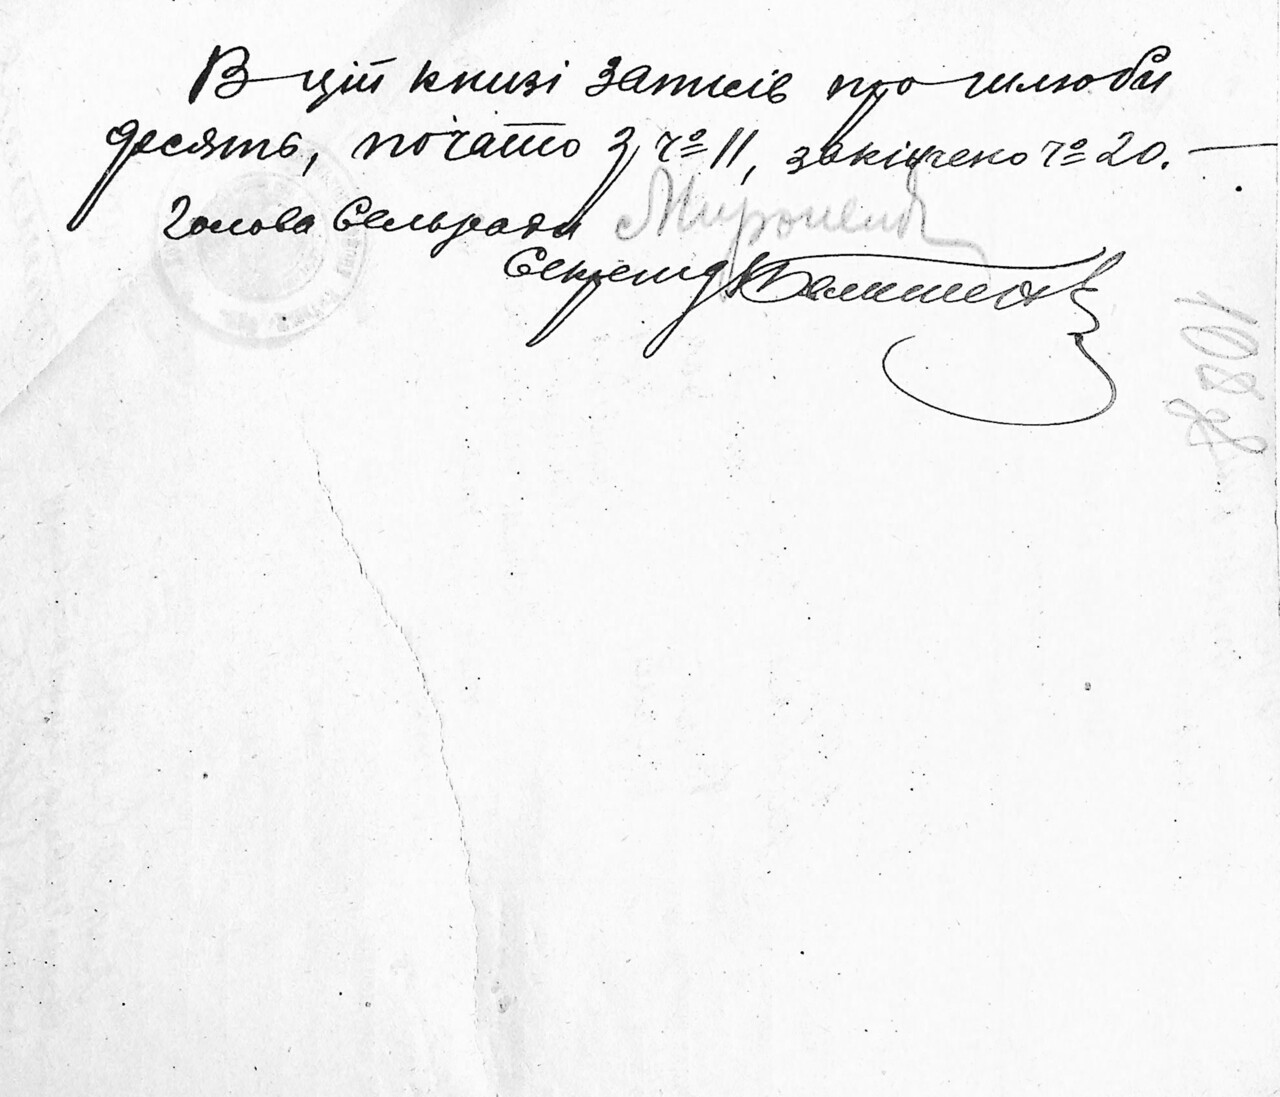 В цій книзі записів про шлюби
десять, почато з ч० 11, закінчено ч० 20.
Голова Сельради
Секретар
108